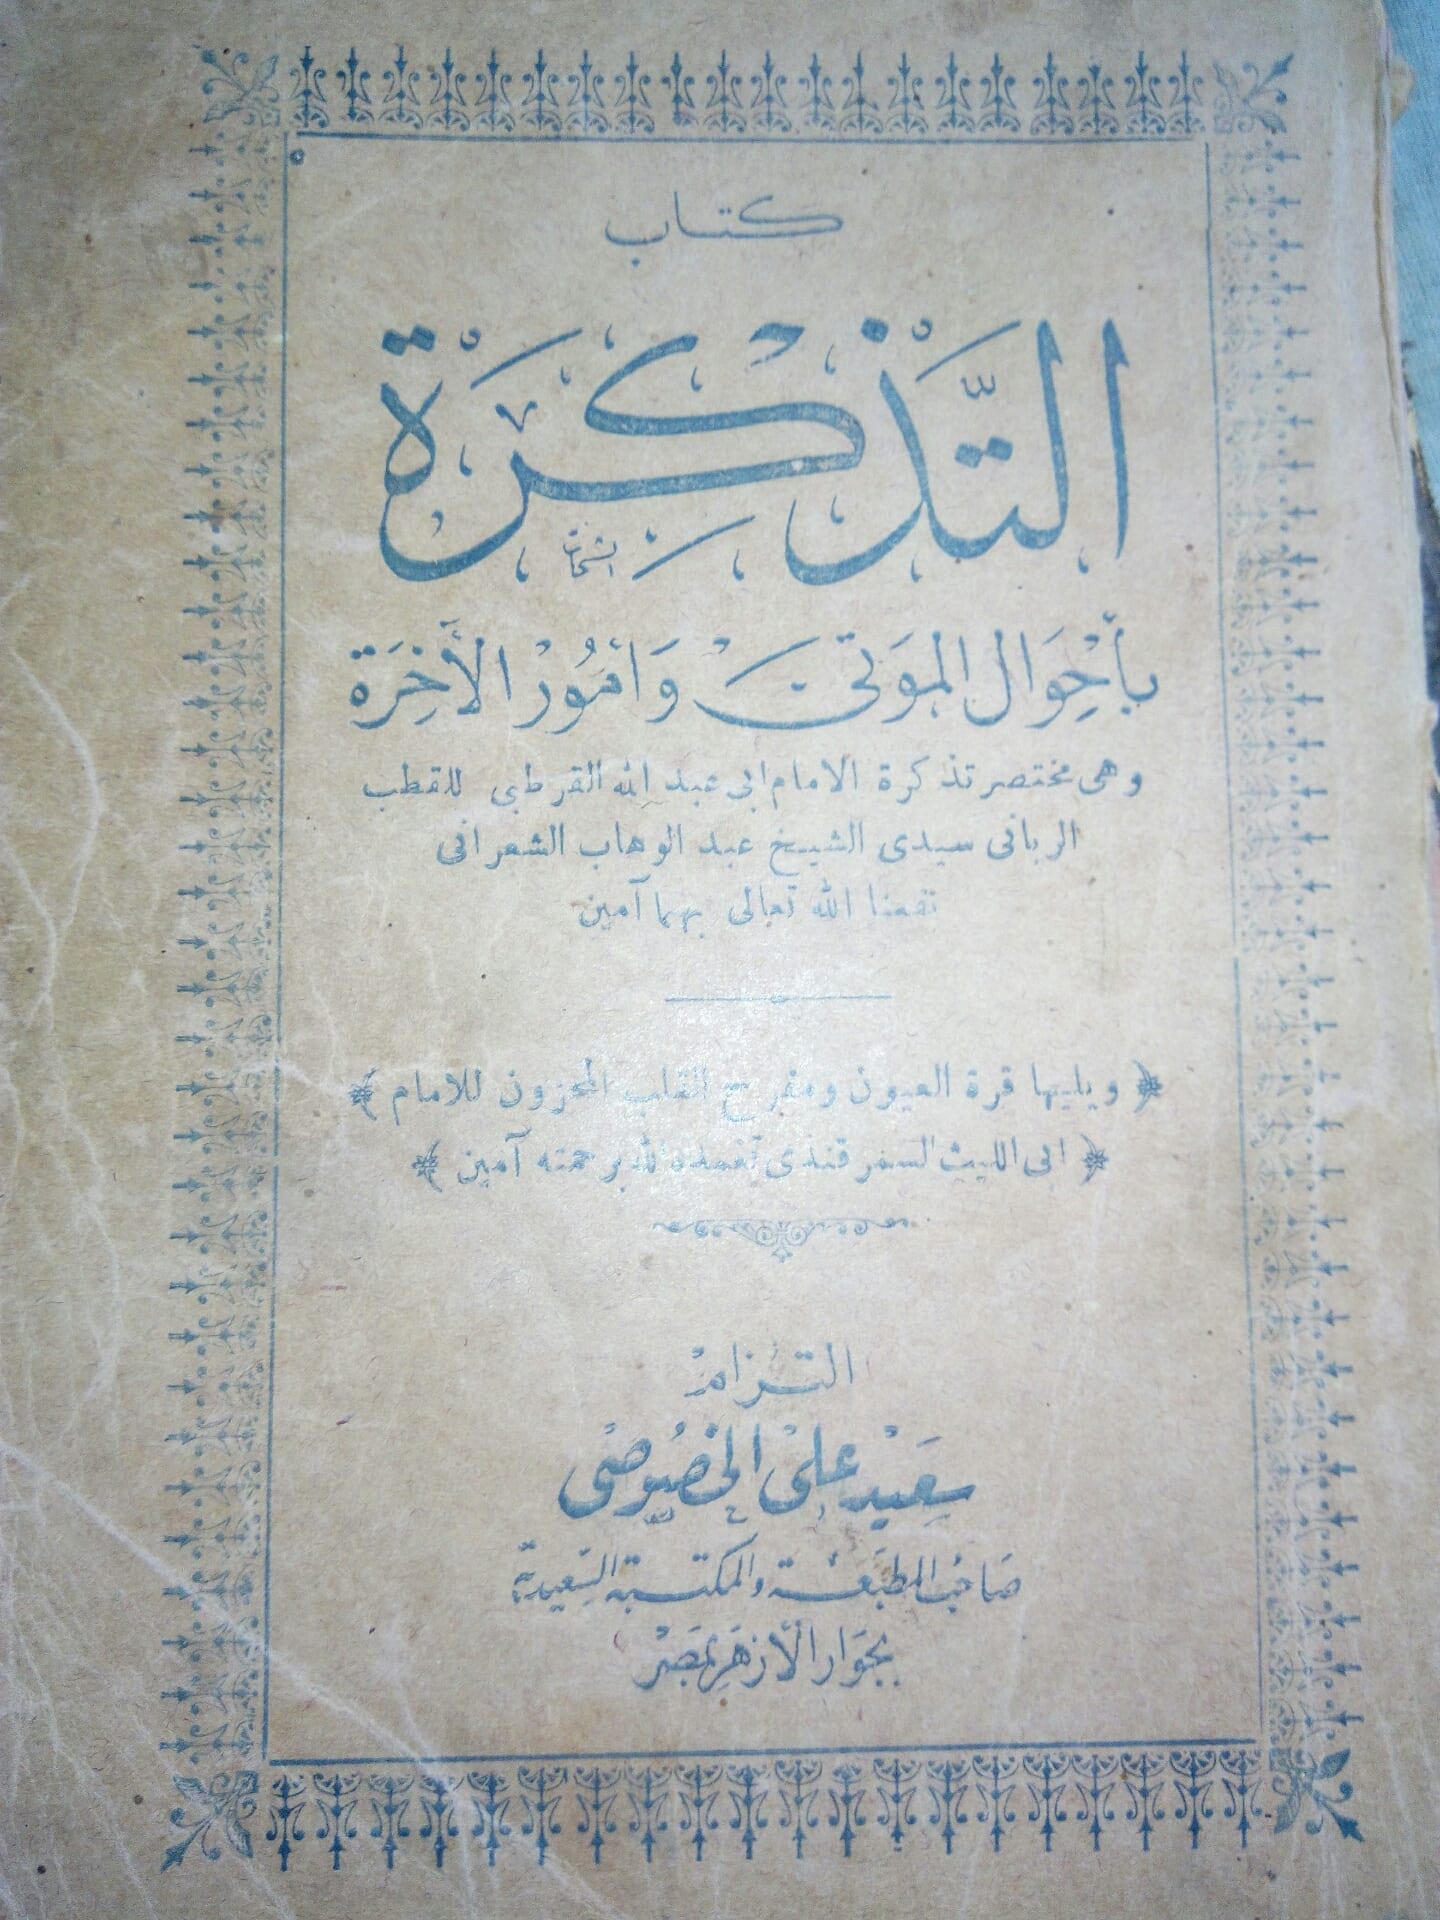 كتاب
التَّذْكِرَة
بأَحْوَال الموَتى وَأمُوُرْ الأَخِرَة
وهى مختصر تذكرة الامام ابى عبد الله القرطبى للقطب
الربانى سيدى الشيخ عبد الوهاب الشعرانى
نفعنا الله تعالى بهما آمين
﴿ ويليها قرة العيون ومفرح القلب المحزون للامام ﴾
﴿ ابى الليث السمرقندى تغمده الله برحمته آمين ﴾
التزام
سَعيْد على الخصُوصى
صَاحب المطبَعة والمكتبة السَّعيدية
بجوَار الأزهَر بمصْر